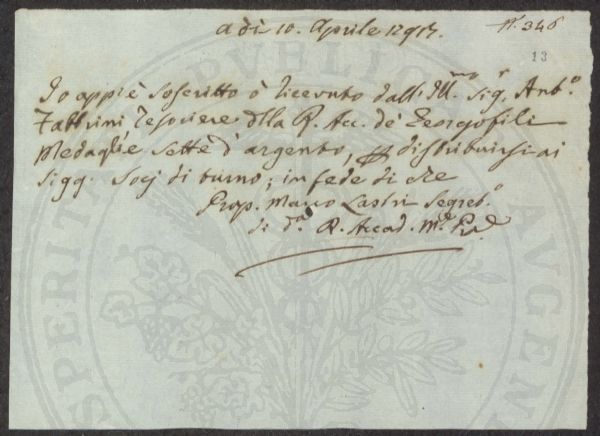 N.º 346
a dì 10. Aprile
13
Io appiè soscritto ò ricevuto dall' Ill.mo Sig.r Ant.o
Fabbrini Tesoriere della R. Acc. de' Georgofili
Medaglie sette d'argento, p distribuirsi ai
Sigg. Socj di turno; in fede di che
Prop. Marco Lastri Segret.o
di d.a R. Accad. M.o P.a
PROSPERITATI PUBLICAE AUGENDAE